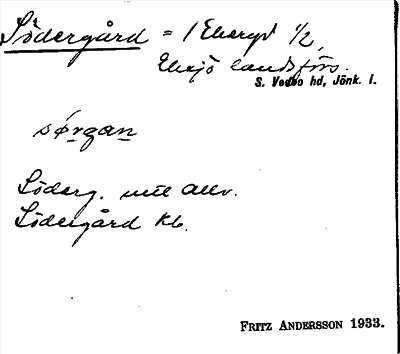 Södergård = 1 Ekeryd 1/2,
Eksjö landsförs.
S. Vedbo hd, Jönk. l.
sørgan
Söderg. mtl allv.
Södergård Kb.
FRITZ ANDERSSON 1933.